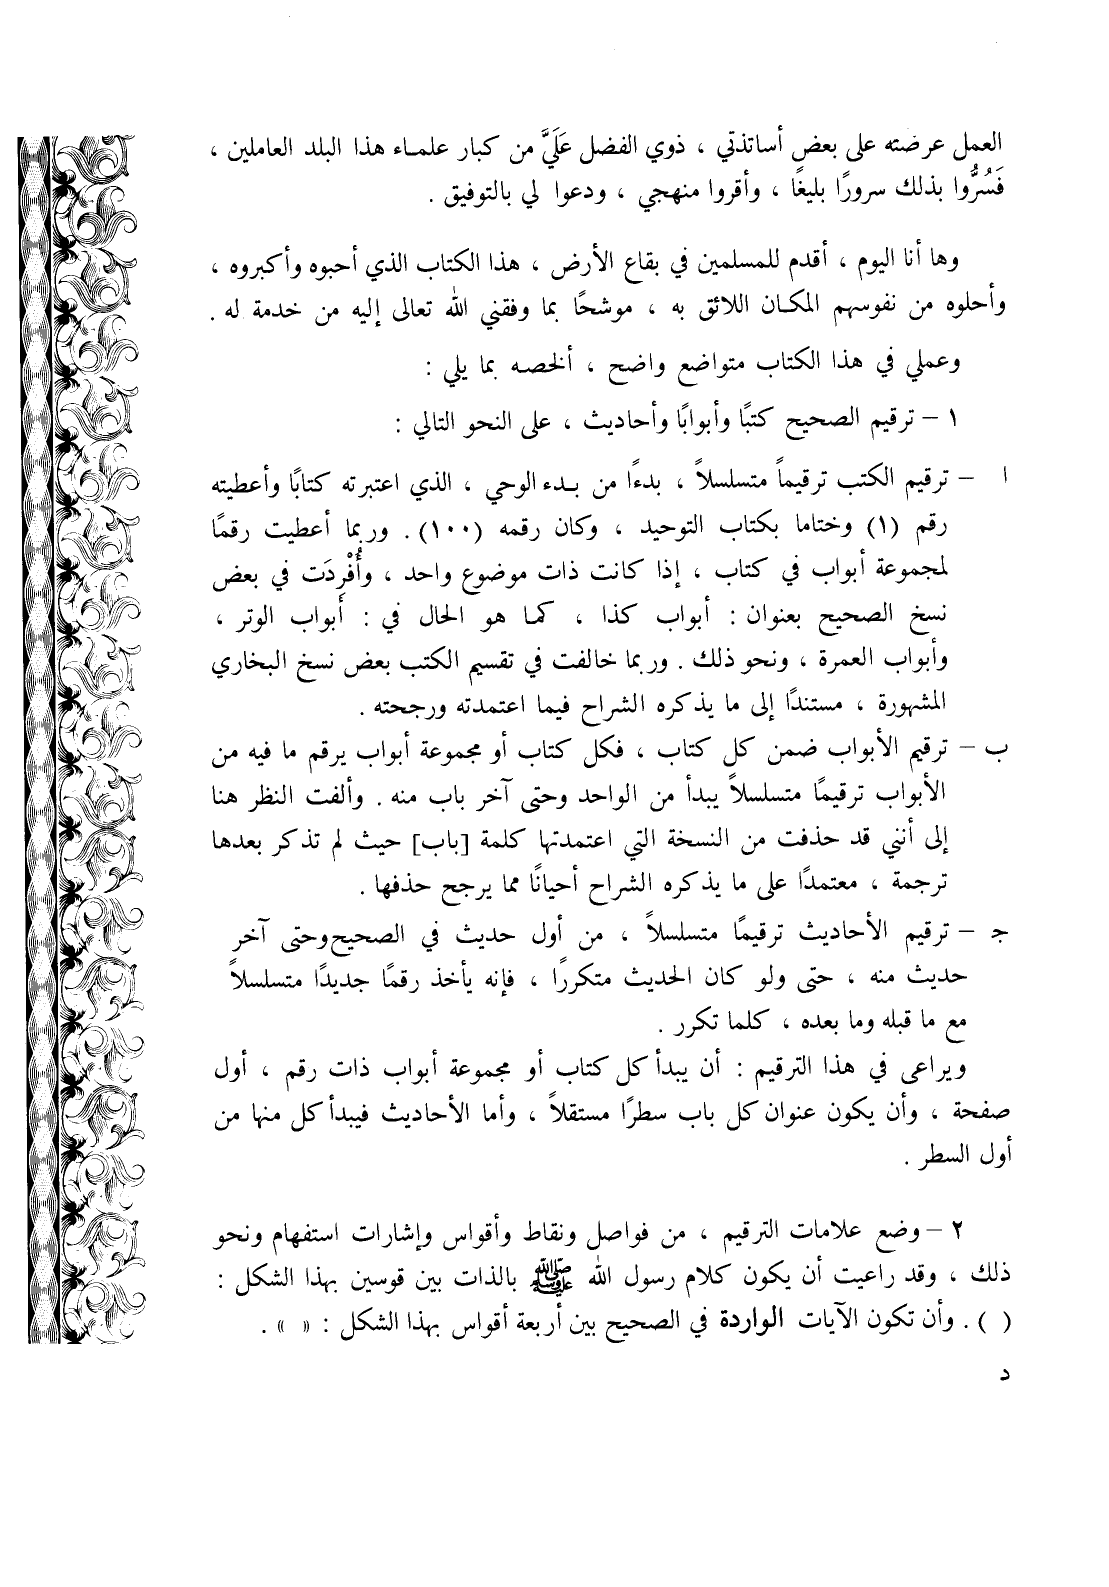 العمل عرضته على بعض أساتذتي ، ذوي الفضل عَلَيَّ من كبار علماء هذا البلد العاملين ،
فَسُرُّوا بذلك سرورًا بليغًا ، وأقروا منهجي ، ودعوا لي بالتوفيق .
وها أنا اليوم ، أقدم للمسلمين في بقاع الأرض ، هذا الكتاب الذي أحبوه وأكبروه ،
وأحلوه من نفوسهم المكان اللائق به ، موشحًا بما وفقني الله تعالى إليه من خدمة له .
وعملي في هذا الكتاب متواضع واضح ، ألخصه بما يلي :
١ – ترقيم الصحيح كتبًا وأبوابًا وأحاديث ، على النحو التالي :
ا – ترقيم الكتب ترقيماً متسلسلاً ، بدءًا من بدء الوحي ، الذي اعتبرته كتابًا وأعطيته
رقم (١) وختاما بكتاب التوحيد ، وكان رقمه (١٠٠) . وربما أعطيت رقمًا
لمجموعة أبواب في كتاب ، إذا كانت ذات موضوع واحد ، وأُفْرِدَت في بعض
نسخ الصحيح بعنوان : أبواب كذا ، كما هو الحال في : أبواب الوتر ،
وأبواب العمرة ، ونحو ذلك . وربما خالفت في تقسيم الكتب بعض نسخ البخاري
المشهورة ، مستندًا إلى ما يذكره الشراح فيما اعتمدته ورجحته .
ب – ترقيم الأبواب ضمن كل كتاب ، فكل كتاب أو مجموعة أبواب يرقم ما فيه من
الأبواب ترقيمًا متسلسلاً يبدأ من الواحد وحتى آخر باب منه . وألفت النظر هنا
إلى أنني قد حذفت من النسخة التي اعتمدتها كلمة [باب] حيث لم تذكر بعدها
ترجمة ، معتمدًا على ما يذكره الشراح أحيانًا مما يرجح حذفها .
جـ – ترقيم الأحاديث ترقيمًا متسلسلاً ، من أول حديث في الصحيح وحتى آخر
حديث منه ، حتى ولو كان الحديث متكررًا ، فإنه يأخذ رقمًا جديدًا متسلسلاً
مع ما قبله وما بعده ، كلما تكرر .
ويراعى في هذا الترقيم : أن يبدأ كل كتاب أو مجموعة أبواب ذات رقم ، أول
صفحة ، وأن يكون عنوان كل باب سطرًا مستقلاً ، وأما الأحاديث فيبدأ كل منها من
أول السطر .
٢ – وضع علامات الترقيم ، من فواصل ونقاط وأقواس وإشارات استفهام ونحو
ذلك ، وقد راعيت أن يكون كلام رسول الله ﷺ بالذات بين قوسين بهذا الشكل :
( ) . وأن تكون الآيات الواردة في الصحيح بين أربعة أقواس بهذا الشكل : « » .
د